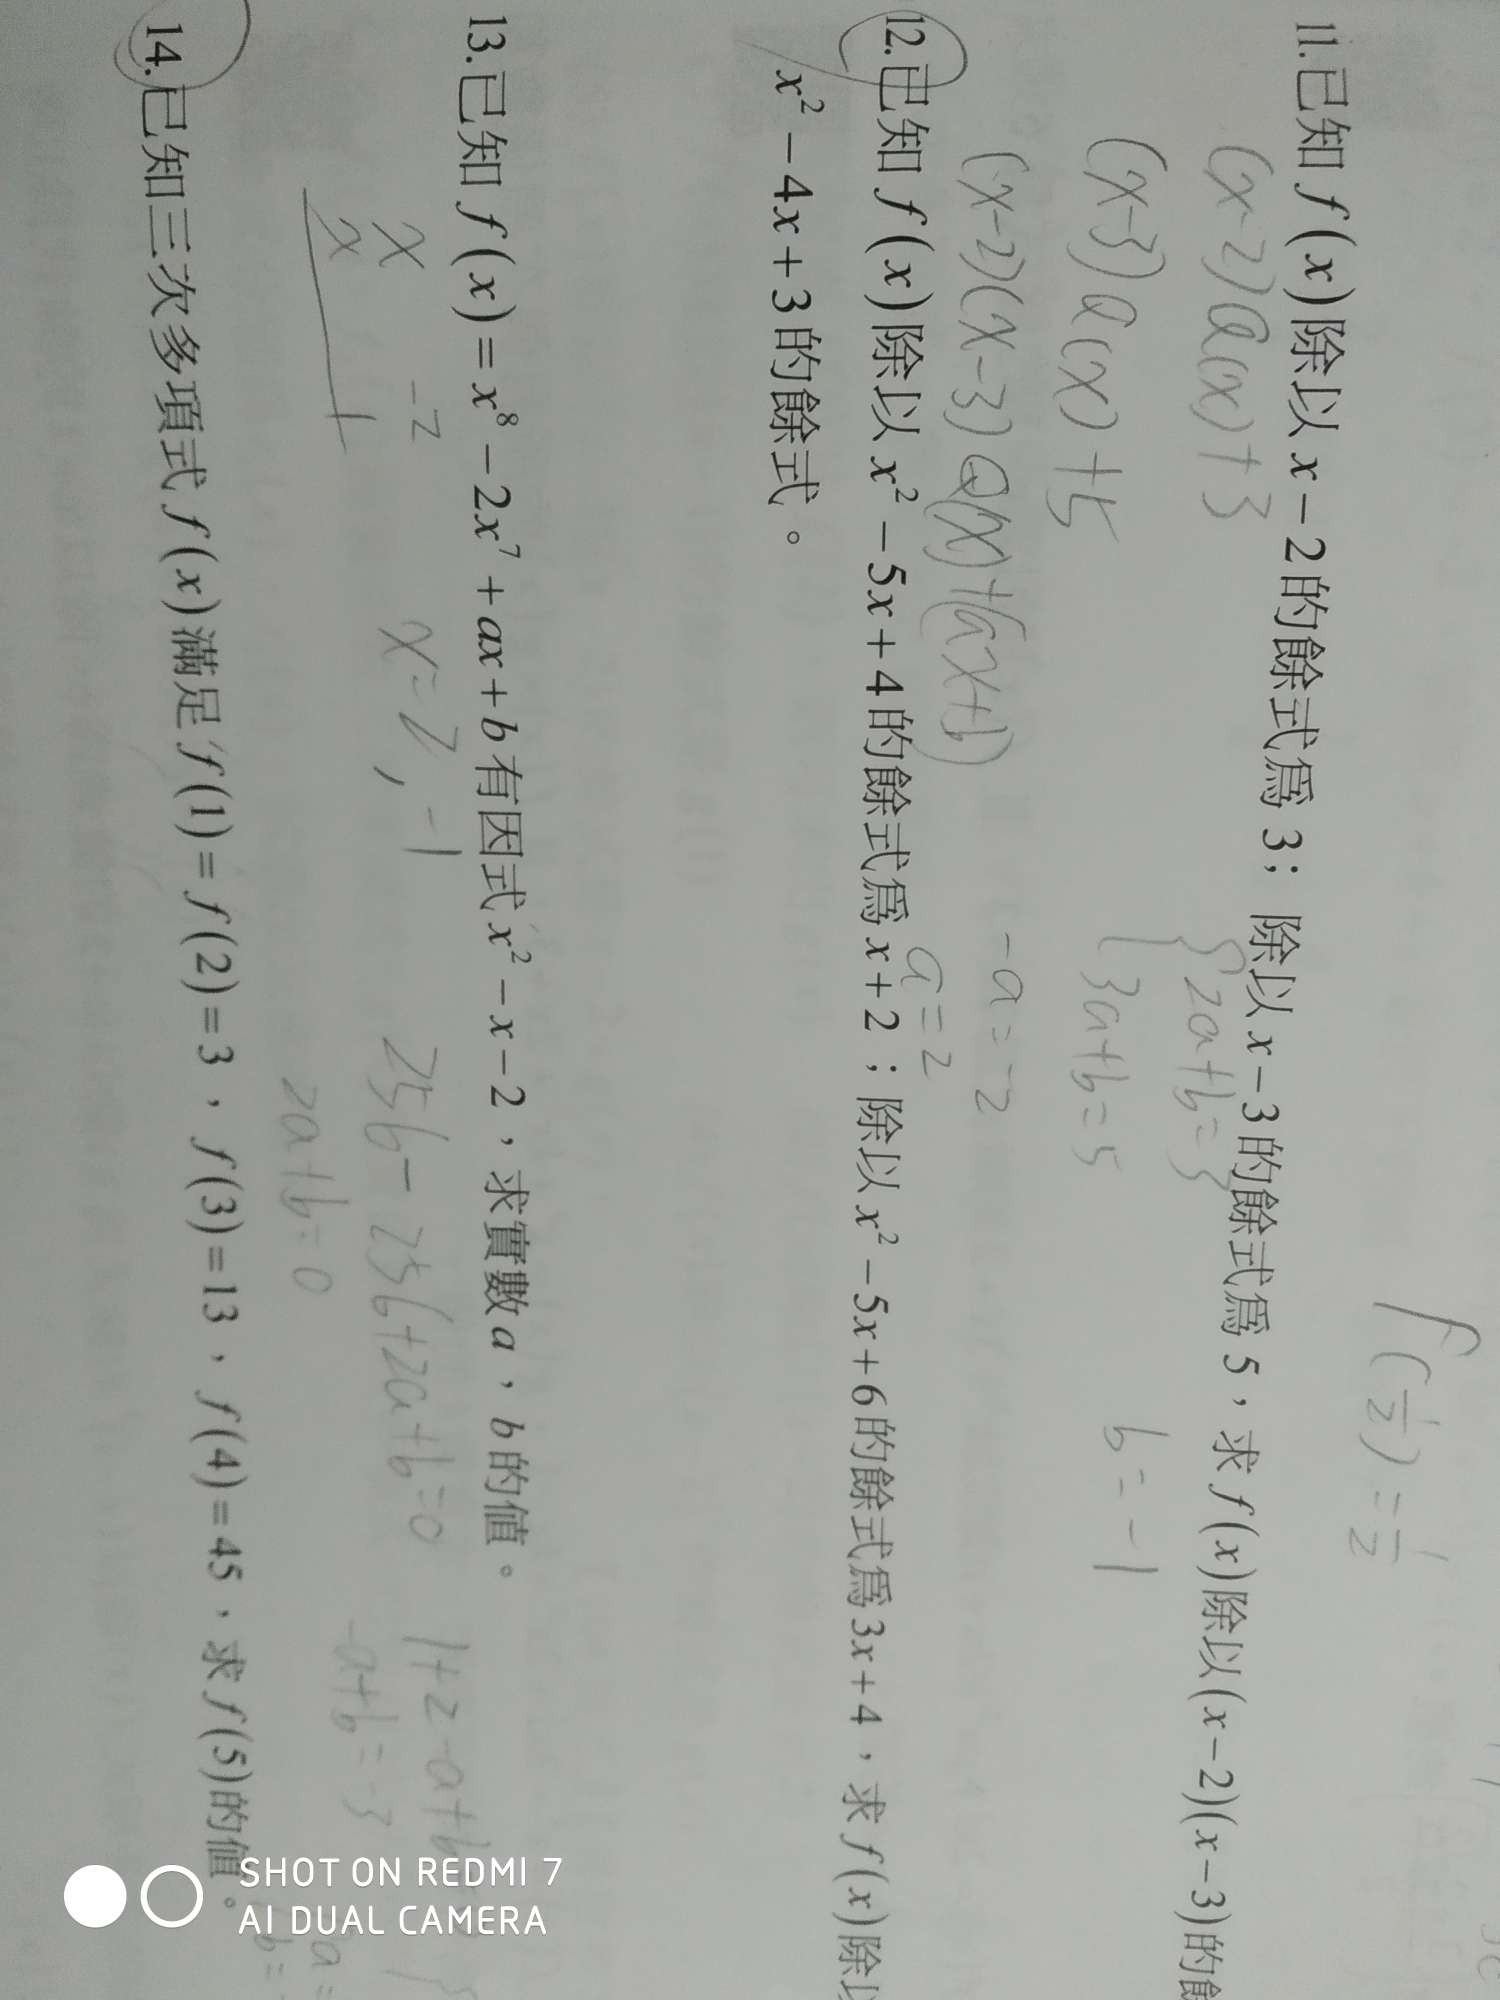 f(1/2) = 1/2
11.已知 f(x)除以 x-2的餘式爲 3；除以 x-3的餘式爲 5，求 f(x)除以(x-2)(x-3)的餘
(x-2)Q(x)+3
{2a+b=3
(x-3)Q(x)+5
3a+b=5
b=-1
(x-2)(x-3)Q(x)+(ax+b)
-a=-2
a=2
12.已知 f(x)除以 x²-5x+4的餘式爲 x+2；除以 x²-5x+6的餘式爲 3x+4，求 f(x)除以
x²-4x+3的餘式。
13.已知 f(x)=x⁸-2x⁷+ax+b有因式 x²-x-2，求實數 a，b的值。
x -2
x 1
x=2,-1
256-256+2a+b=0
2a+b=0
1+2-a+b
-a+b=-3
14.已知三次多項式 f(x)滿足 f(1)=f(2)=3，f(3)=13，f(4)=45，求 f(5)的值。
SHOT ON REDMI 7
AI DUAL CAMERA